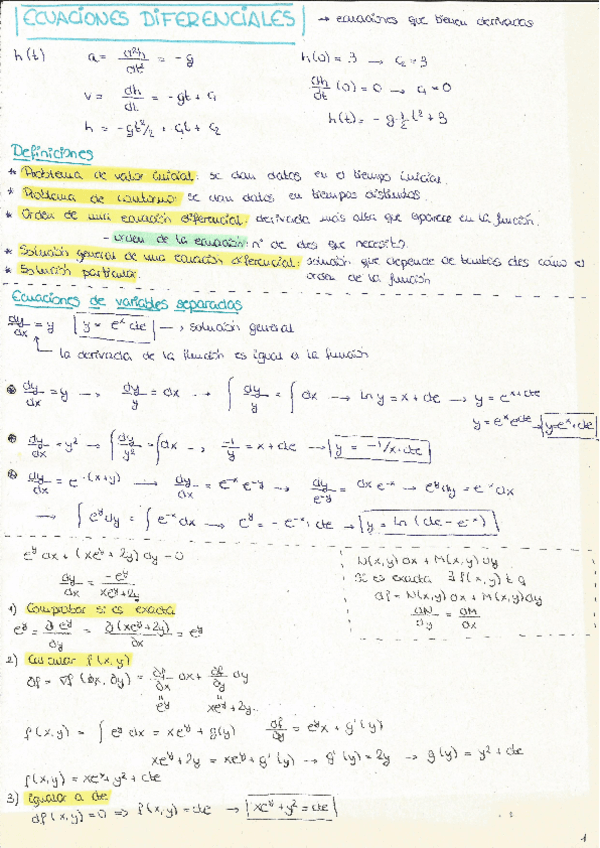 ECUACIONES DIFERENCIALES → ecuaciones que tienen derivadas
h(t) a = d²h/dt² = -g h(0) = 3 → c₂ = 3
v = dh/dt = -gt + c₁ dh/dt (0) = 0 → c₁ = 0
h = -gt²/2 + c₁t + c₂ h(t) = -g·½t² + 3
Definiciones
* Problema de valor inicial: se dan datos en el tiempo inicial.
* Problema de contorno: se dan datos en tiempos distintos.
* Orden de una ecuación diferencial: derivada más alta que aparece en la función.
- orden de la ecuación: nº de ctes que necesito.
* Solución general de una ecuación diferencial: solución que depende de tantas ctes como el
* Solución particular. orden de la función
Ecuaciones de variables separadas
dy/dx = y y = eˣ cte → solución general
la derivada de la función es igual a la función
dy/dx = y → dy/y = dx → ∫ dy/y = ∫ dx → ln y = x + cte → y = eˣ⁺ᶜᵗᵉ
y = eˣ eᶜᵗᵉ → y = eˣ · cte
dy/dx = y² → ∫ dy/y² = ∫ dx → -1/y = x + cte → y = -1/x + cte
dy/dx = e^-(x+y) → dy/dx = e⁻ˣ e⁻ʸ → dy/e⁻ʸ = dx e⁻ˣ → eʸ dy = e⁻ˣ dx
→ ∫ eʸ dy = ∫ e⁻ˣ dx → eʸ = -e⁻ˣ + cte → y = ln (cte - e⁻ˣ)
eʸ dx + (xeʸ + 2y) dy = 0 N(x,y) dx + M(x,y) dy
dy/dx = -eʸ/xeʸ + 2y Si es exacta ∃ f(x,y) t q
df = N(x,y) dx + M(x,y) dy
1) Comprobar si es exacta ∂N/∂y = ∂M/∂x
eʸ = ∂eʸ/∂y = ∂(xeʸ + 2y)/∂x = eʸ
2) Calcular f(x,y)
df = ∇f (dx, dy) = ∂f/∂x dx + ∂f/∂y dy
eʸ xeʸ + 2y
f(x,y) = ∫ eʸ dx = xeʸ + g(y) ∂f/∂y = eʸ x + g'(y)
xeʸ + 2y = xeʸ + g'(y) → g'(y) = 2y → g(y) = y² + cte
f(x,y) = xeʸ + y² + cte
3) Igualar a cte
df(x,y) = 0 ⇒ f(x,y) = cte → xeʸ + y² = cte
1